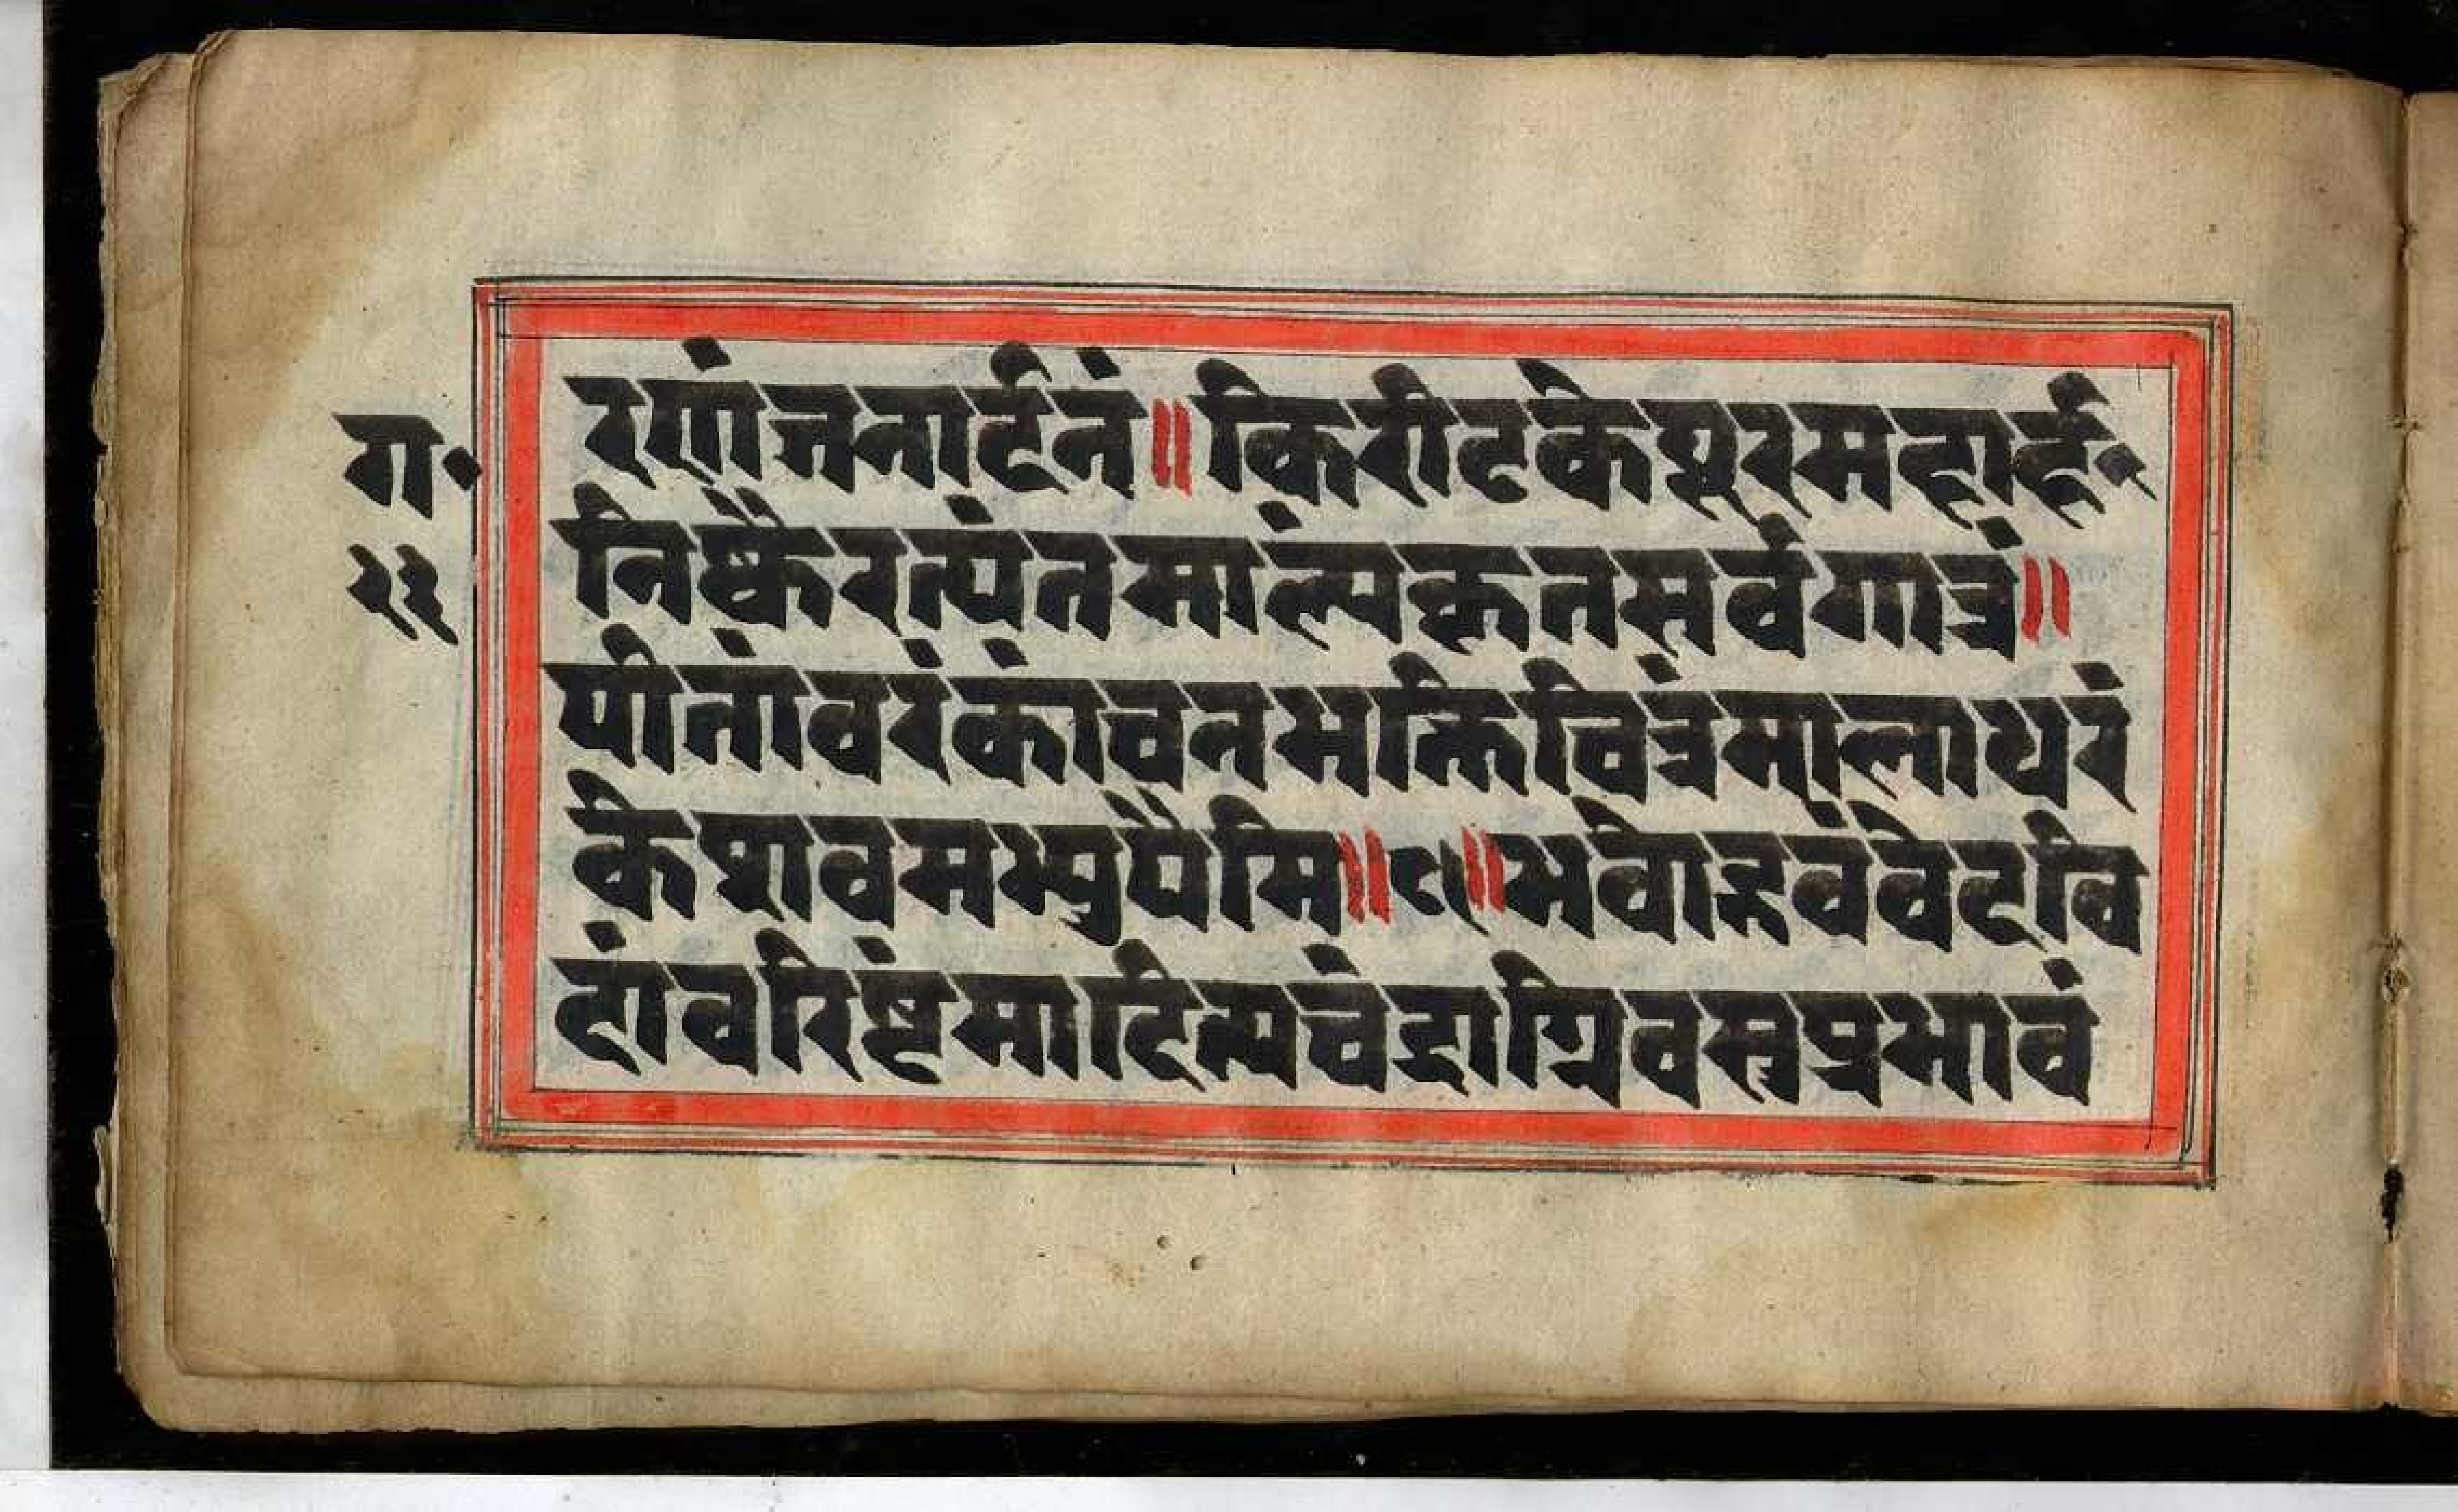 रणं जनार्दनं ॥ किरीटकेयूरमहार्ह
ग॰
निष्कैरत्यंतमालंकृतसर्वगात्रं ॥
२३
पीतांवरं कांचनभक्तिचित्रं मालाधरं
केशवमभ्युपैमि ॥ ९ ॥ भवोद्भवं वेदवि
दां वरिष्ठमादित्यचंद्राग्निवसुप्रभावं